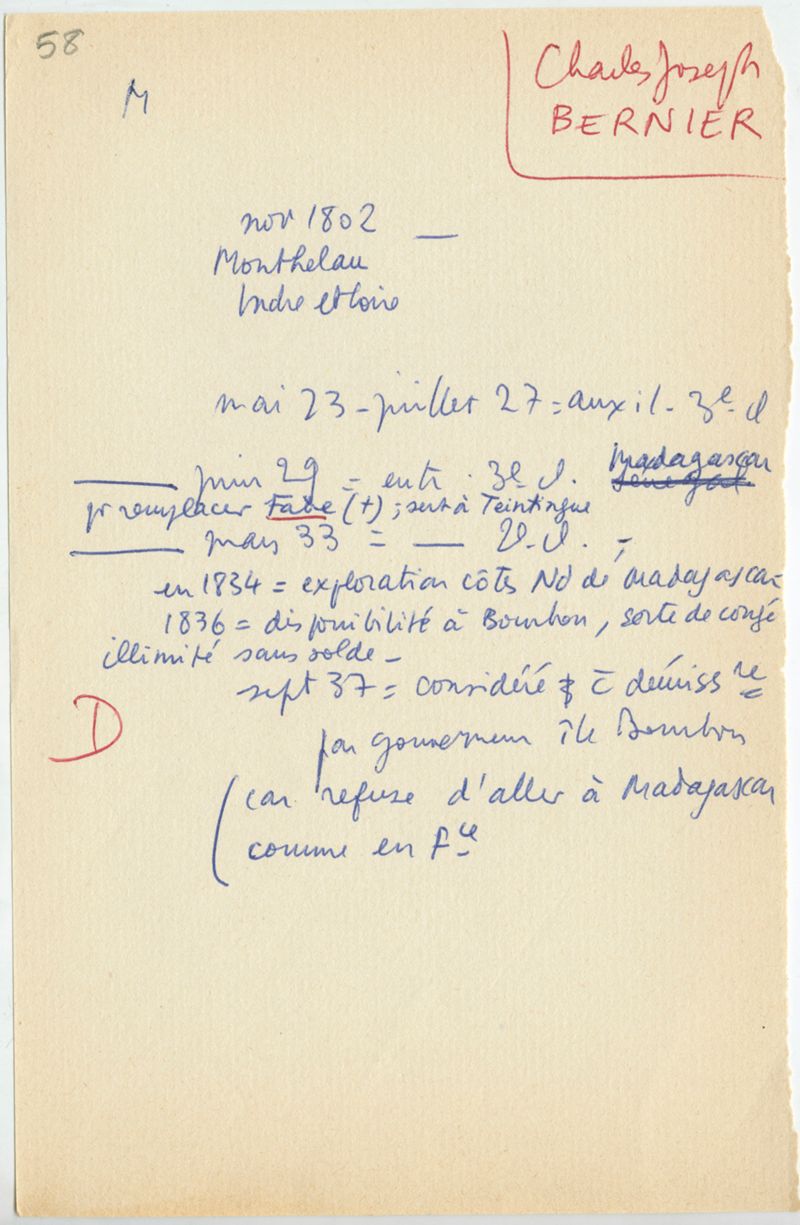 58
M
Charles Joseph
BERNIER
nov 1802 —
Monthelau
Indre et Loire
mai 23 - juillet 27 = auxil. 3e cl
—— juin 29 = entr. 3e cl. Madagascar
Sénégal
pr remplacer Fabre (+) ; sert à Teintingue
—— mars 33 = — 2e cl. -
en 1834 = exploration côtes Nd de Madagascar
1836 = disponibilité à Bourbon, sorte de congé
illimité sans solde -
sept 37 = considéré c̄ démissre
D
par gouverneur île Bourbon
(car refuse d'aller à Madagascar
comme en Fce